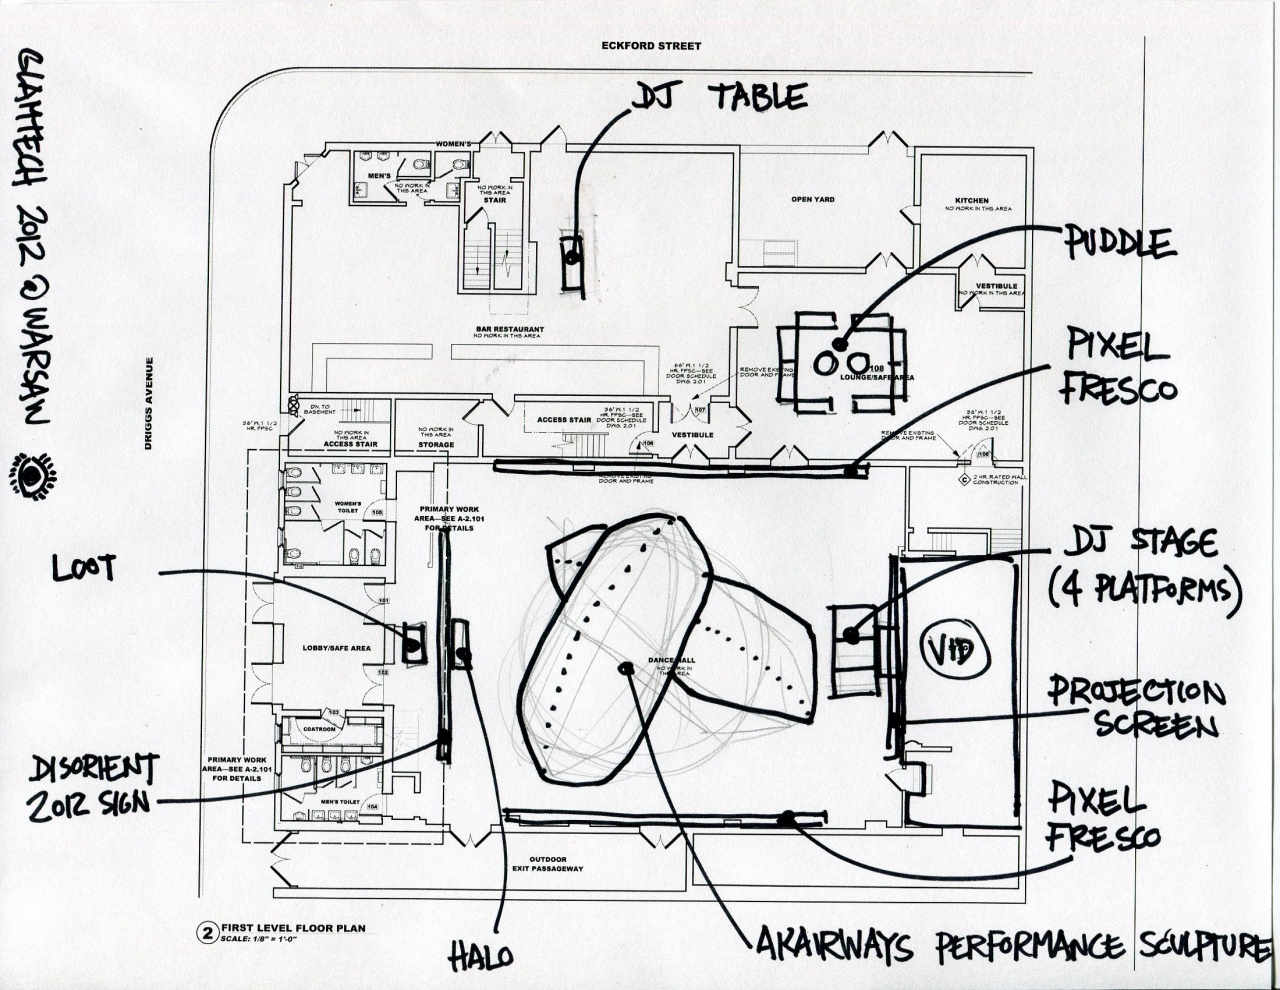 ECKFORD STREET
DJ TABLE
GLAMTECH 2012 @ WARSAW
WOMEN'S
MEN'S
NO WORK IN
THIS AREA
NO WORK IN
THIS AREA
STAIR
OPEN YARD
KITCHEN
NO WORK IN THIS AREA
PUDDLE
VESTIBULE
NO WORK IN THIS AREA
BAR RESTAURANT
NO WORK IN THIS AREA
PIXEL
FRESCO
DRIGGS AVENUE
REMOVE EXISTING
DOOR AND FRAME
108
LOUNGE/SAFE AREA
HR. FPSC—SEE
DOOR SCHEDULE
DWG. 2.01
107
DN. TO
BASEMENT
HR. FPSC
NO WORK IN
THIS AREA
ACCESS STAIR
NO WORK IN
THIS AREA
STORAGE
ACCESS STAIR
HR. FPSC—SEE
DOOR SCHEDULE
DWG. 2.01
106
VESTIBULE
REMOVE EXISTING
DOOR AND FRAME
REMOVE EXISTING
DOOR AND FRAME
C
2 HR. RATED WALL
CONSTRUCTION
WOMEN'S
TOILET
105
PRIMARY WORK
AREA—SEE A-2.101
FOR DETAILS
DJ STAGE
(4 PLATFORMS)
LOOT
101
LOBBY/SAFE AREA
102
DANCE HALL
NO WORK IN
THIS AREA
VID
PROJECTION
SCREEN
103
COATROOM
PRIMARY WORK
AREA—SEE A-2.101
FOR DETAILS
MEN'S TOILET
104
DISORIENT
2012 SIGN
PIXEL
FRESCO
OUTDOOR
EXIT PASSAGEWAY
2
FIRST LEVEL FLOOR PLAN
SCALE: 1/8" = 1'-0"
HALO
AKAIRWAYS PERFORMANCE SCULPTURE